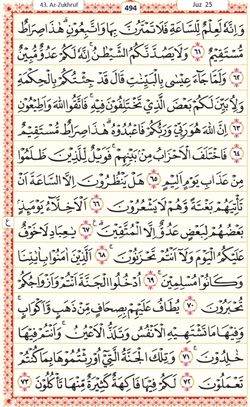 43. Az-Zukhruf 494 Juz 25
وَإِنَّهُ لَعِلْمٌ لِّلسَّاعَةِ فَلَا تَمْتَرُنَّ بِهَا وَاتَّبِعُونِ هَٰذَا صِرَاطٌ
مُّسْتَقِيمٌ ٦١ وَلَا يَصُدَّنَّكُمُ الشَّيْطَٰنُ إِنَّهُ لَكُمْ عَدُوٌّ مُّبِينٌ
٦٢ وَلَمَّا جَاءَ عِيسَىٰ بِالْبَيِّنَٰتِ قَالَ قَدْ جِئْتُكُم بِالْحِكْمَةِ
وَلِأُبَيِّنَ لَكُم بَعْضَ الَّذِي تَخْتَلِفُونَ فِيهِ فَاتَّقُوا اللَّهَ وَأَطِيعُونِ
٦٣ إِنَّ اللَّهَ هُوَ رَبِّي وَرَبُّكُمْ فَاعْبُدُوهُ هَٰذَا صِرَاطٌ مُّسْتَقِيمٌ
٦٤ فَاخْتَلَفَ الْأَحْزَابُ مِن بَيْنِهِمْ فَوَيْلٌ لِّلَّذِينَ ظَلَمُوا
مِنْ عَذَابِ يَوْمٍ أَلِيمٍ ٦٥ هَلْ يَنظُرُونَ إِلَّا السَّاعَةَ أَن
تَأْتِيَهُم بَغْتَةً وَهُمْ لَا يَشْعُرُونَ ٦٦ الْأَخِلَّاءُ يَوْمَئِذٍ
بَعْضُهُمْ لِبَعْضٍ عَدُوٌّ إِلَّا الْمُتَّقِينَ ٦٧ يَٰعِبَادِ لَا خَوْفٌ
عَلَيْكُمُ الْيَوْمَ وَلَا أَنتُمْ تَحْزَنُونَ ٦٨ الَّذِينَ ءَامَنُوا بِـَٔايَٰتِنَا
وَكَانُوا مُسْلِمِينَ ٦٩ ادْخُلُوا الْجَنَّةَ أَنتُمْ وَأَزْوَٰجُكُمْ
تُحْبَرُونَ ٧٠ يُطَافُ عَلَيْهِم بِصِحَافٍ مِّن ذَهَبٍ وَأَكْوَابٍ
وَفِيهَا مَا تَشْتَهِيهِ الْأَنفُسُ وَتَلَذُّ الْأَعْيُنُ وَأَنتُمْ فِيهَا
خَٰلِدُونَ ٧١ وَتِلْكَ الْجَنَّةُ الَّتِي أُورِثْتُمُوهَا بِمَا كُنتُمْ
تَعْمَلُونَ ٧٢ لَكُمْ فِيهَا فَٰكِهَةٌ كَثِيرَةٌ مِّنْهَا تَأْكُلُونَ ٧٣